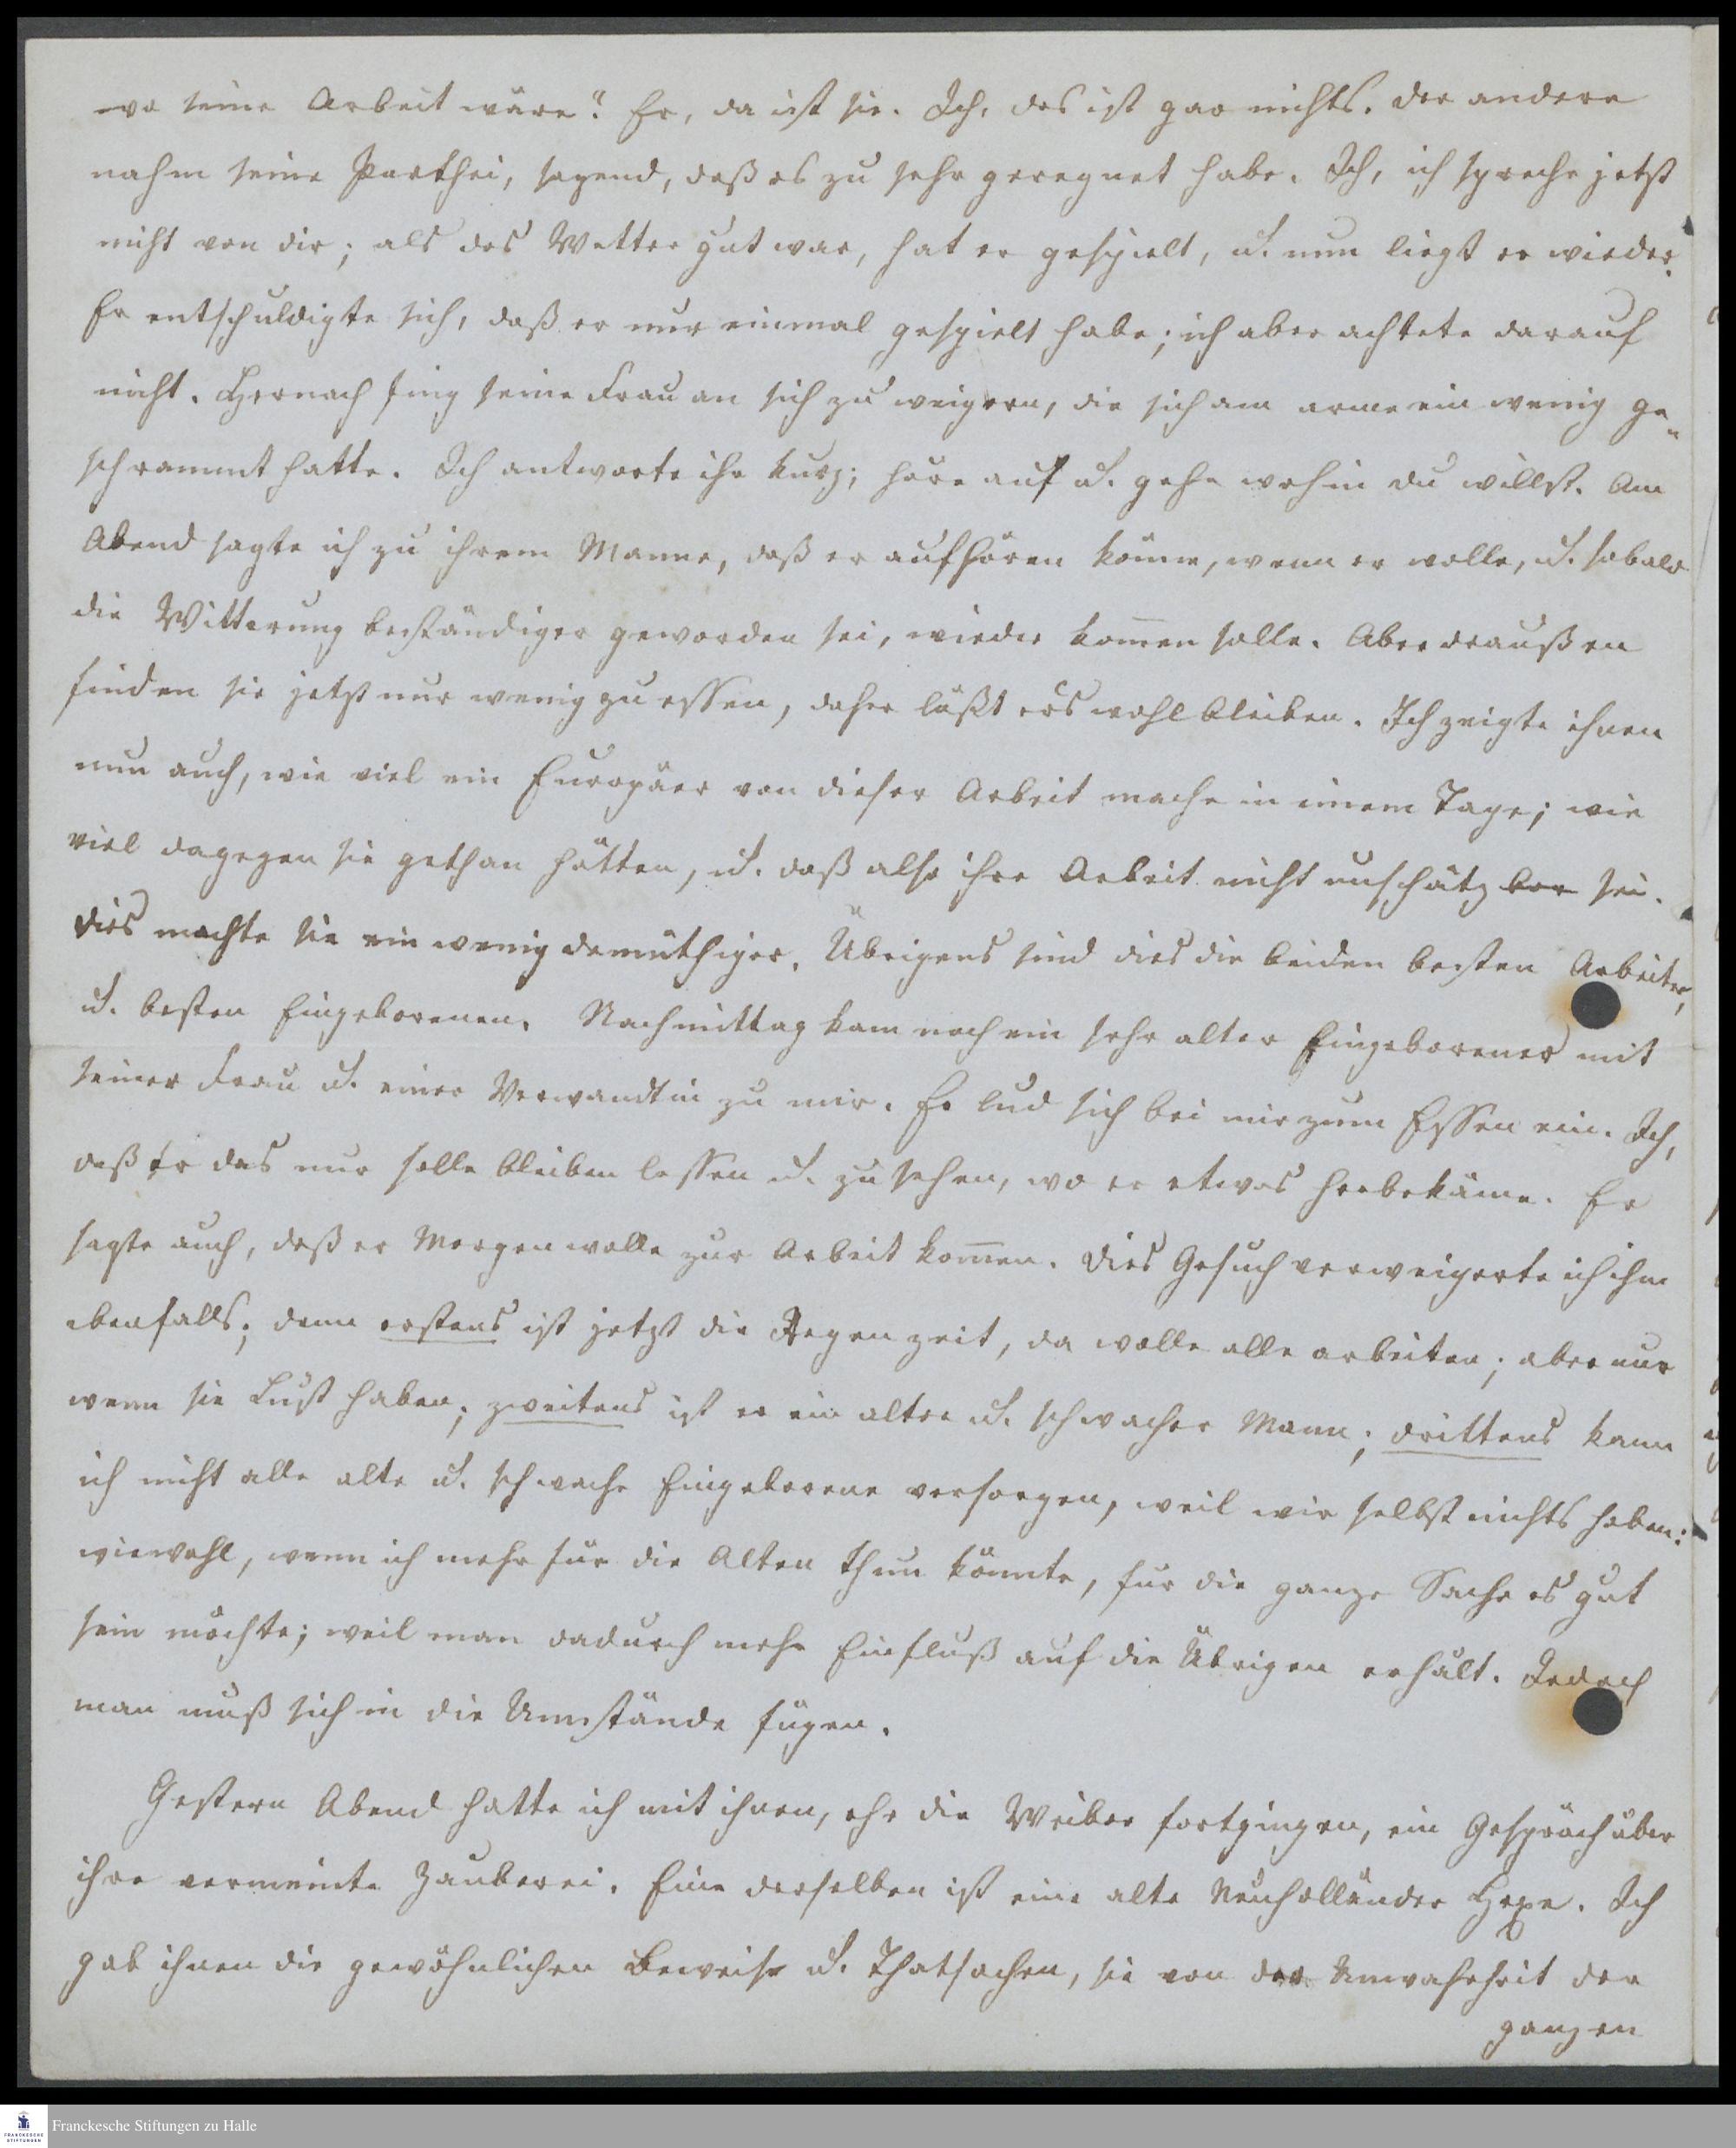 wo seine Arbeit wäre? Er, da ist sie. Ich, das ist gar nichts. Der andere
nahm seine Parthei, sagend, daß es zu sehr geregnet habe. Ich, ich spreche jetzt
nicht von dir; als das Wetter gut war, hat er gespielt, u. nun liegt er wieder.
Er entschuldigte sich, daß er nur einmal gespielt habe; ich aber achtete darauf
nicht. Hernach fing seine Frau an sich zu weigern, die sich am arme ein wenig ge-
schrammt hatte. Ich antworte ihr kurz; höre auf u. gehe wohin du willst. Am
Abend sagte ich zu ihrem Manne, daß er aufhören könne, wenn er wolle, u. sobald
die Witterung beständiger geworden sei, wieder kom̅en solle. Aber draußen
finden sie jetzt nur wenig zu essen, daher läßt ers wohl bleiben. Ich zeigte ihnen
nun auch, wie viel ein Europäer von dieser Arbeit mache in einem Tage; wie
viel dagegen sie gethan hätten, u. daß also ihre Arbeit nicht unschätzbar sei.
Dies machte sie ein wenig demüthiger. Übrigens sind dies die beiden besten Arbeiter,
u. besten Eingeborenen. Nachmittag kam noch ein sehr alter Eingeborener mit
seiner Frau u. einer Verwandtin zu mir. Er lud sich bei mir zum Essen ein. Ich,
daß er das nur solle bleiben lassen u. zu sehen, wo er etwas herbekäme. Er
sagte auch, daß er Morgen wolle zur Arbeit kom̅en. Dies Gesuch verweigerte ich ihm
ebenfalls; denn erstens ist jetzt die Regenzeit, da wolle alle arbeiten; aber nur
wenn sie Lust haben; zweitens ist er ein alter u. schwacher Mann; drittens kann
ich nicht alle alte u. schwache Eingeborene versorgen, weil wir selbst nichts haben:
wiewohl, wenn ich mehr für die Alten thun könnte, für die ganze Sache es gut
sein möchte; weil man dadurch mehr Einfluß auf die Übrigen erhält. Jedoch
man muß sich in die Umstände fügen.
Gestern Abend hatte ich mit ihnen, ehe die Weiber fortgingen, ein Gespräch über
ihre vermeinte Zauberei. Eine derselben ist eine alte Neuholländer Hexe. Ich
gab ihnen die gewöhnlichen Beweise u. Thatsachen, sie von der Unwahrheit der
ganzen
FRANCKESCHE STIFTUNGEN
Franckesche Stiftungen zu Halle